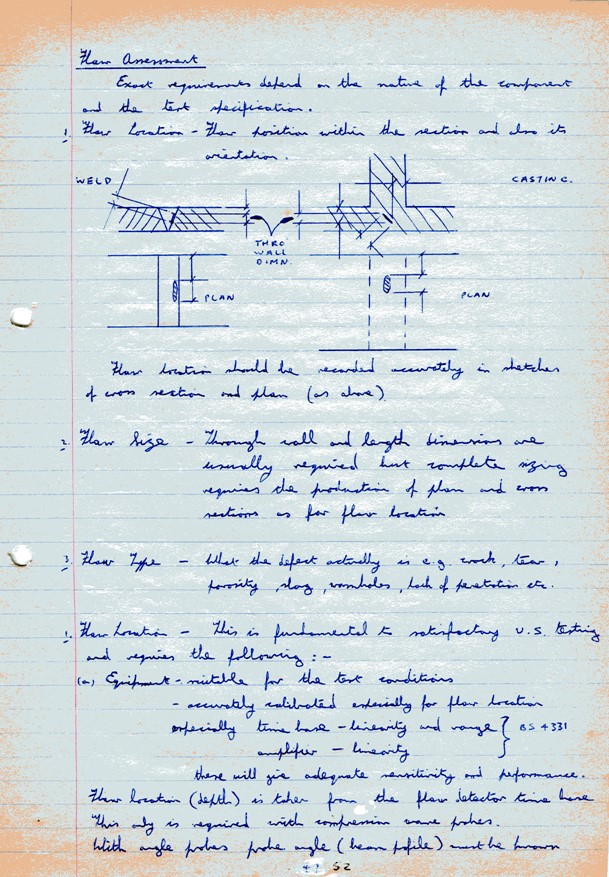 Flaw Assessment
Exact requirements depend on the nature of the component
and the test specification.
1. Flaw Location - Flaw position within the section and also its
orientation.
WELD
CASTING.
THRO
WALL
DIMN.
PLAN
PLAN
Flaw location should be recorded accurately in sketches
of cross section and plan (as above)
2. Flaw Size - Through wall and length dimensions are
usually required but complete sizing
requires the production of plan and cross
sections as for flaw location
3. Flaw Type - What the defect actually is e.g. crack, tear,
porosity, slag, wormholes, lack of penetration etc.
1. Flaw Location - This is fundamental to satisfactory U.S. testing
and requires the following :-
(a) Equipment - suitable for the test conditions
- accurately calibrated especially for flaw location
especially time base - linearity and range } BS 4331
amplifier - linearity
these will give adequate sensitivity and performance.
Flaw location (depth) is taken from the flaw detector time base
This only is required with compression wave probes.
With angle probes probe angle (beam pofile) must be known
52